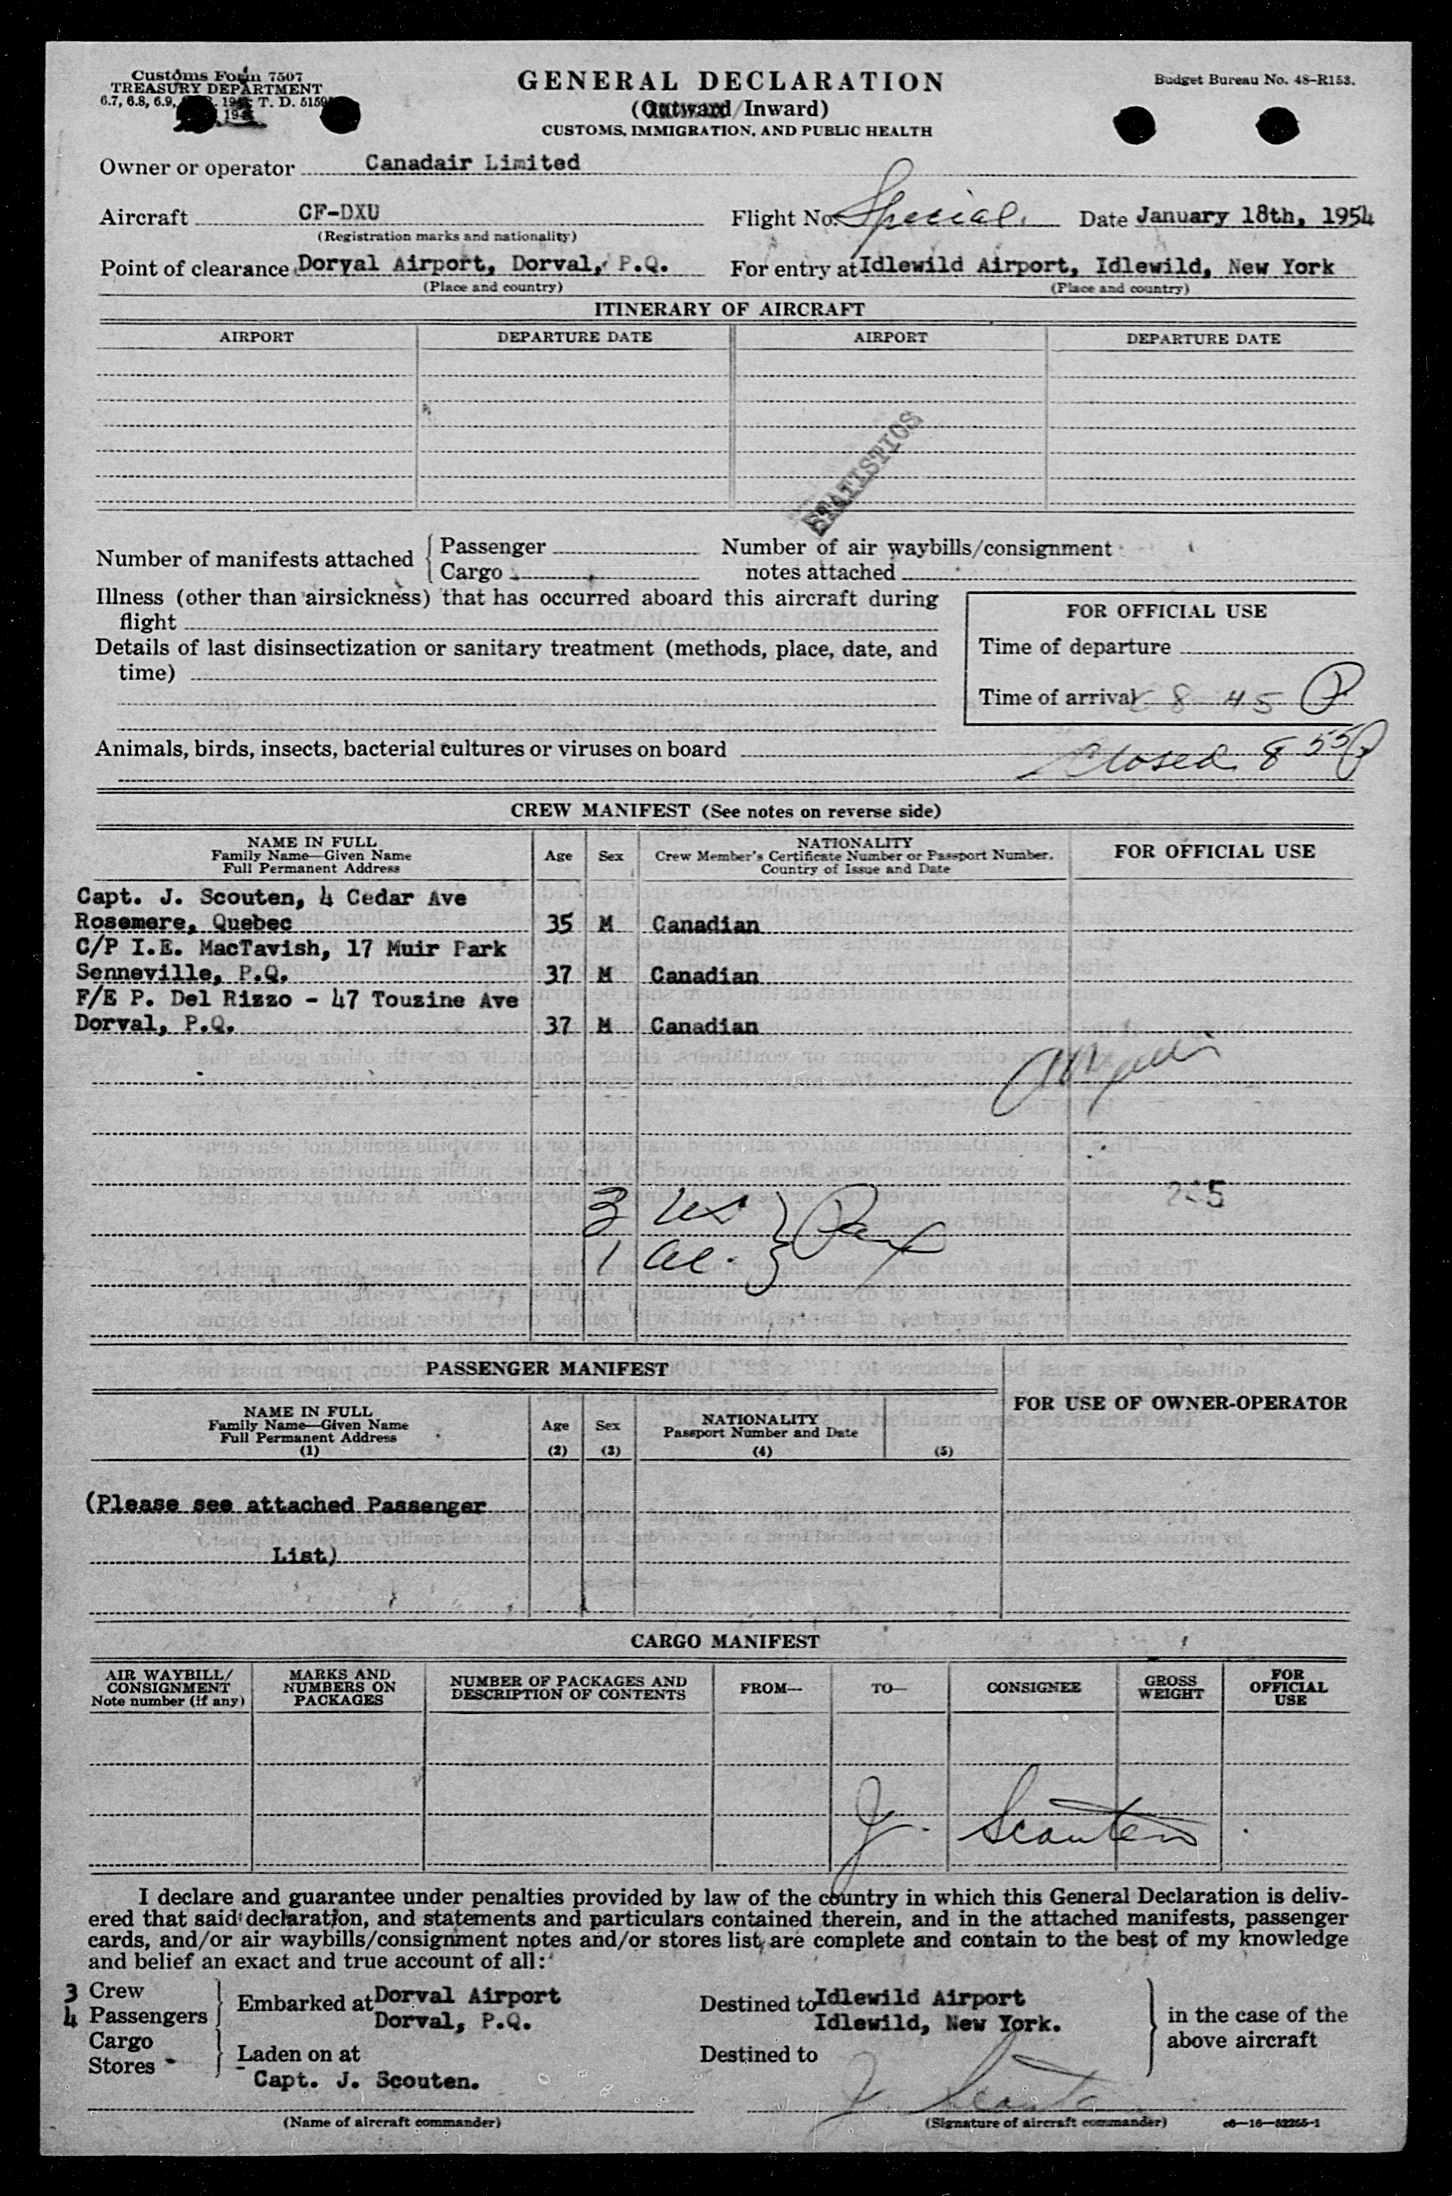 Customs Form 7507
TREASURY DEPARTMENT
6.7, 6.8, 6.9, T. D.
GENERAL DECLARATION
(Outward/Inward)
CUSTOMS, IMMIGRATION, AND PUBLIC HEALTH
Budget Bureau No. 48-R153.
Owner or operator Canadair Limited
Aircraft CF-DXU Flight No. Special. Date January 18th, 1954
(Registration marks and nationality)
Point of clearance Dorval Airport, Dorval, P.Q. For entry at Idlewild Airport, Idlewild, New York
(Place and country) (Place and country)
ITINERARY OF AIRCRAFT
AIRPORT DEPARTURE DATE AIRPORT DEPARTURE DATE
STATISTICS
Number of manifests attached { Passenger
Cargo
Number of air waybills/consignment
notes attached
Illness (other than airsickness) that has occurred aboard this aircraft during
flight
Details of last disinsectization or sanitary treatment (methods, place, date, and
time)
FOR OFFICIAL USE
Time of departure
Time of arrival 8 45 P
Animals, birds, insects, bacterial cultures or viruses on board
Closed 8 55 P
CREW MANIFEST (See notes on reverse side)
NAME IN FULL
Family Name—Given Name
Full Permanent Address
Age
Sex
NATIONALITY
Crew Member's Certificate Number or Passport Number.
Country of Issue and Date
FOR OFFICIAL USE
Capt. J. Scouten, 4 Cedar Ave
Rosemere, Quebec 35 M Canadian
C/P I.E. MacTavish, 17 Muir Park
Senneville, P.Q. 37 M Canadian
F/E P. Del Rizzo - 47 Touzine Ave
Dorval, P.Q. 37 M Canadian
3 US } Pax
1 al.
PASSENGER MANIFEST
FOR USE OF OWNER-OPERATOR
NAME IN FULL
Family Name—Given Name
Full Permanent Address
(1)
Age
(2)
Sex
(3)
NATIONALITY
Passport Number and Date
(4)
(5)
(Please see attached Passenger
List)
CARGO MANIFEST
AIR WAYBILL/
CONSIGNMENT
Note number (if any)
MARKS AND
NUMBERS ON
PACKAGES
NUMBER OF PACKAGES AND
DESCRIPTION OF CONTENTS
FROM—
TO—
CONSIGNEE
GROSS
WEIGHT
FOR
OFFICIAL
USE
J. Scouten
I declare and guarantee under penalties provided by law of the country in which this General Declaration is deliv-
ered that said declaration, and statements and particulars contained therein, and in the attached manifests, passenger
cards, and/or air waybills/consignment notes and/or stores list, are complete and contain to the best of my knowledge
and belief an exact and true account of all:
3 Crew
4 Passengers
Cargo
Stores
Embarked at Dorval Airport
Dorval, P.Q.
Laden on at
Destined to Idlewild Airport
Idlewild, New York.
Destined to
in the case of the
above aircraft
Capt. J. Scouten.
J. Scouten
(Name of aircraft commander)
(Signature of aircraft commander)
c8—16—52255-1